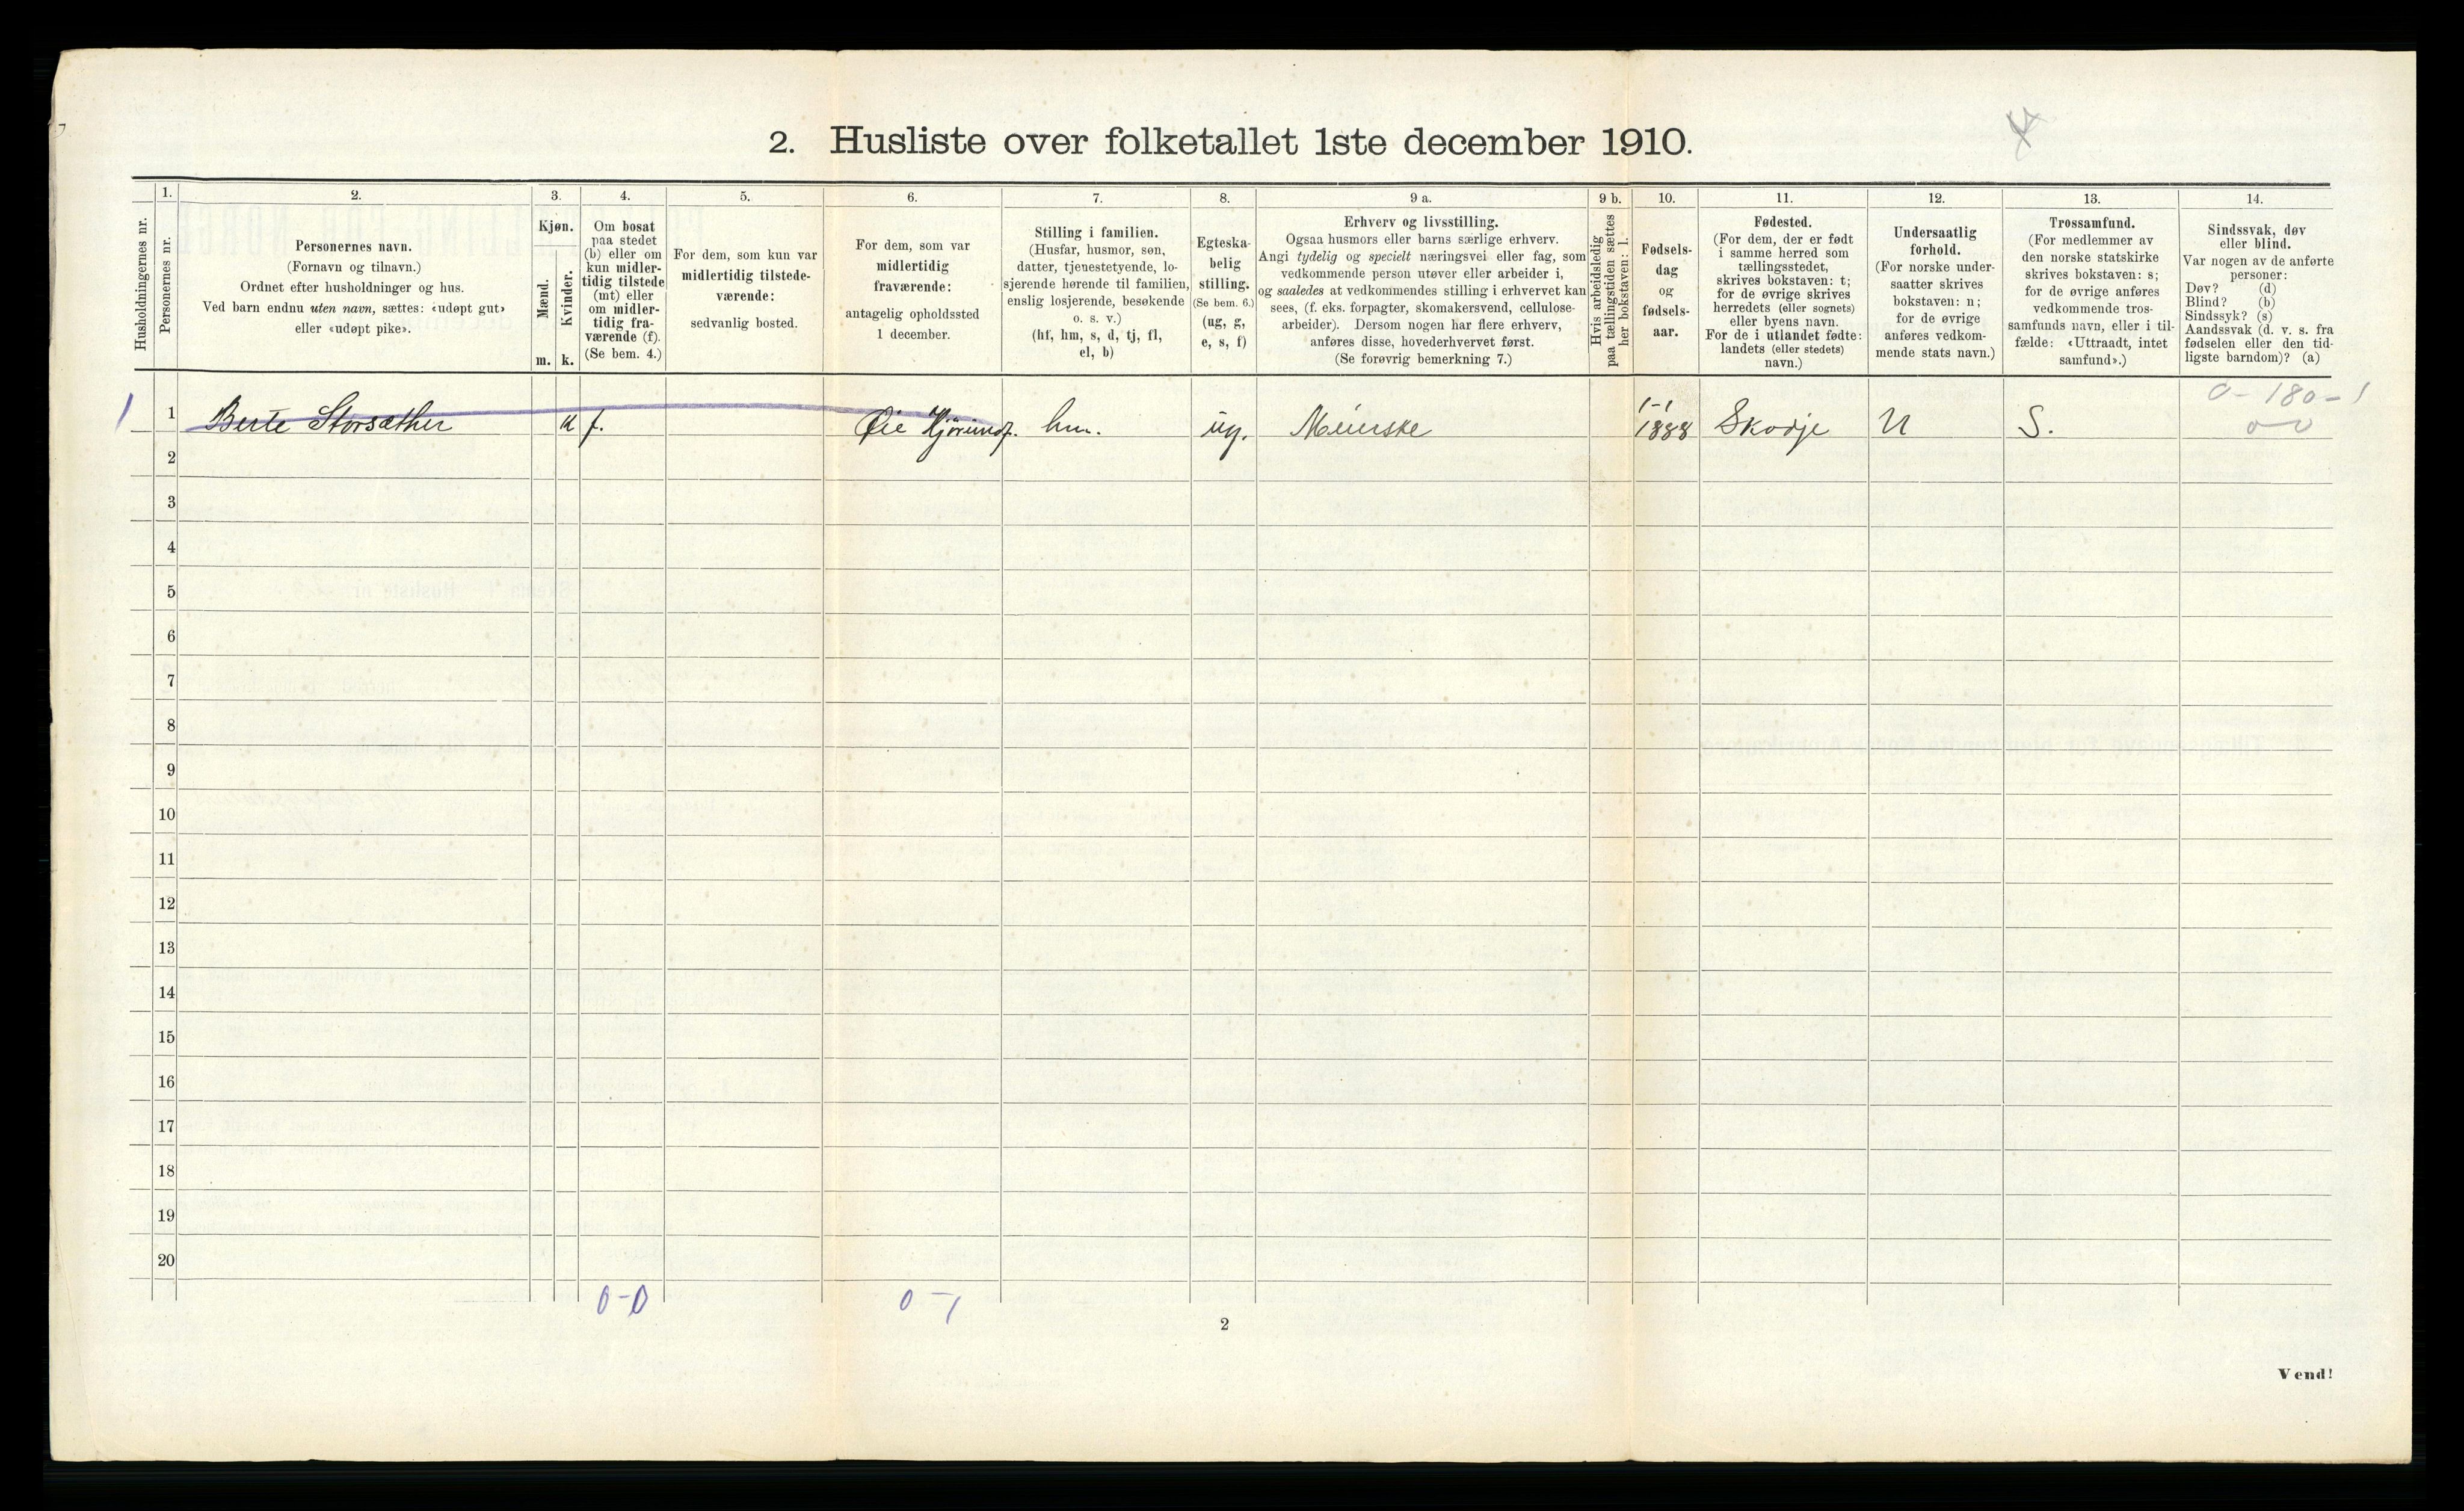 2. Husliste over folketallet 1ste december 1910.
1. 2. 3. 4. 5. 6. 7. 8. 9 a. 9 b. 10. 11. 12. 13. 14.
Husholdningernes nr.
Personernes nr.
Personernes navn.
(Fornavn og tilnavn.)
Ordnet efter husholdninger og hus.
Ved barn endnu uten navn, sættes: «udøpt gut»
eller «udøpt pike».
Kjøn.
Mænd.
Kvinder.
m. k.
Om bosat
paa stedet
(b) eller om
kun midler-
tidig tilstede
(mt) eller
om midler-
tidig fra-
værende (f).
(Se bem. 4.)
For dem, som kun var
midlertidig tilstede-
værende:
sedvanlig bosted.
For dem, som var
midlertidig
fraværende:
antagelig opholdssted
1 december.
Stilling i familien.
(Husfar, husmor, søn,
datter, tjenestetyende, lo-
sjerende hørende til familien,
enslig losjerende, besøkende
o. s. v.)
(hf, hm, s, d, tj, fl,
el, b)
Egteska-
belig
stilling.
(Se bem. 6.)
(ug, g,
e, s, f)
Erhverv og livsstilling.
Ogsaa husmors eller barns særlige erhverv.
Angi tydelig og specielt næringsvei eller fag, som
vedkommende person utøver eller arbeider i,
og saaledes at vedkommendes stilling i erhvervet kan
sees, (f. eks. forpagter, skomakersvend, cellulose-
arbeider). Dersom nogen har flere erhverv,
anføres disse, hovederhvervet først.
(Se forøvrig bemerkning 7.)
Hvis arbeidsledig
paa tællingstiden sættes
her bokstaven: l.
Fødsels-
dag
og
fødsels-
aar.
Fødested.
(For dem, der er født
i samme herred som
tællingsstedet,
skrives bokstaven: t;
for de øvrige skrives
herredets (eller sognets)
eller byens navn.
For de i utlandet fødte:
landets (eller stedets)
navn.)
Undersaatlig
forhold.
(For norske under-
saatter skrives
bokstaven: n;
for de øvrige
anføres vedkom-
mende stats navn.)
Trossamfund.
(For medlemmer av
den norske statskirke
skrives bokstaven: s;
for de øvrige anføres
vedkommende tros-
samfunds navn, eller i til-
fælde: «Uttraadt, intet
samfund».)
Sindssvak, døv
eller blind.
Var nogen av de anførte
personer:
Døv? (d)
Blind? (b)
Sindssyk? (s)
Aandssvak (d. v. s. fra
fødselen eller den tid-
ligste barndom)? (a)
0-180-1
0-0
1 1 Berte Storsæther k f. Øie Hjørundf. hm. ug. Meierske 1-1 1888 Skodje N S.
2
3
4
5
6
7
8
9
10
11
12
13
14
15
16
17
18
19
20
0-0 0-1
2
Vend!